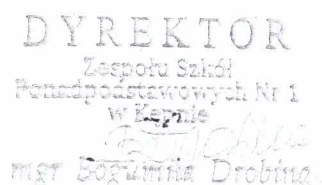 DYREKTOR
Zespołu Szkół
Ponadpodstawowych Nr 1
w Kępnie
mgr Bogumiła Drobina